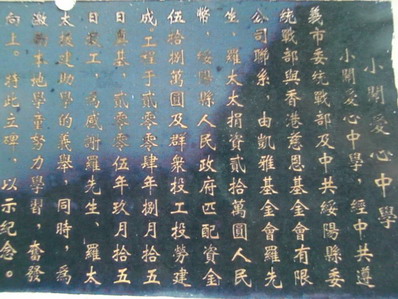 小關愛心中學
小關愛心中學，經中共遵
義市委统戰部及中共綏陽縣委
统戰部與香港慈恩基金會有限
公司聯系，由凱雅基金會羅先
生、羅太太捐資貳拾萬圓人民
幣，綏陽縣人民政府匹配資金
伍拾捌萬圓及群衆投工投勞建
成。工程于贰零零肆年捌月拾五
日奠基，贰零零伍年玖月拾五
日竣工，爲感谢羅先生、羅太
太投建助學的義舉，同時，爲
激勵本地學童努力學習，奮發
向上。特此立碑，以示紀念。